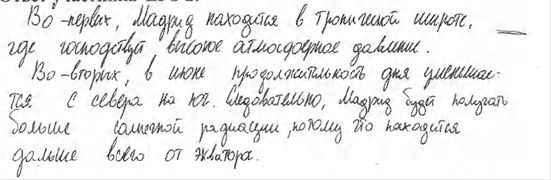 Во-первых, Мадрид находится в тропической широте,
где господствует высокое атмосферное давление.
Во-вторых, в июне продолжительность дня уменьшае-
тся с севера на юг. Следовательно, Мадрид будет получать
больше солнечной радиации, потому что находится
дальше всего от экватора.